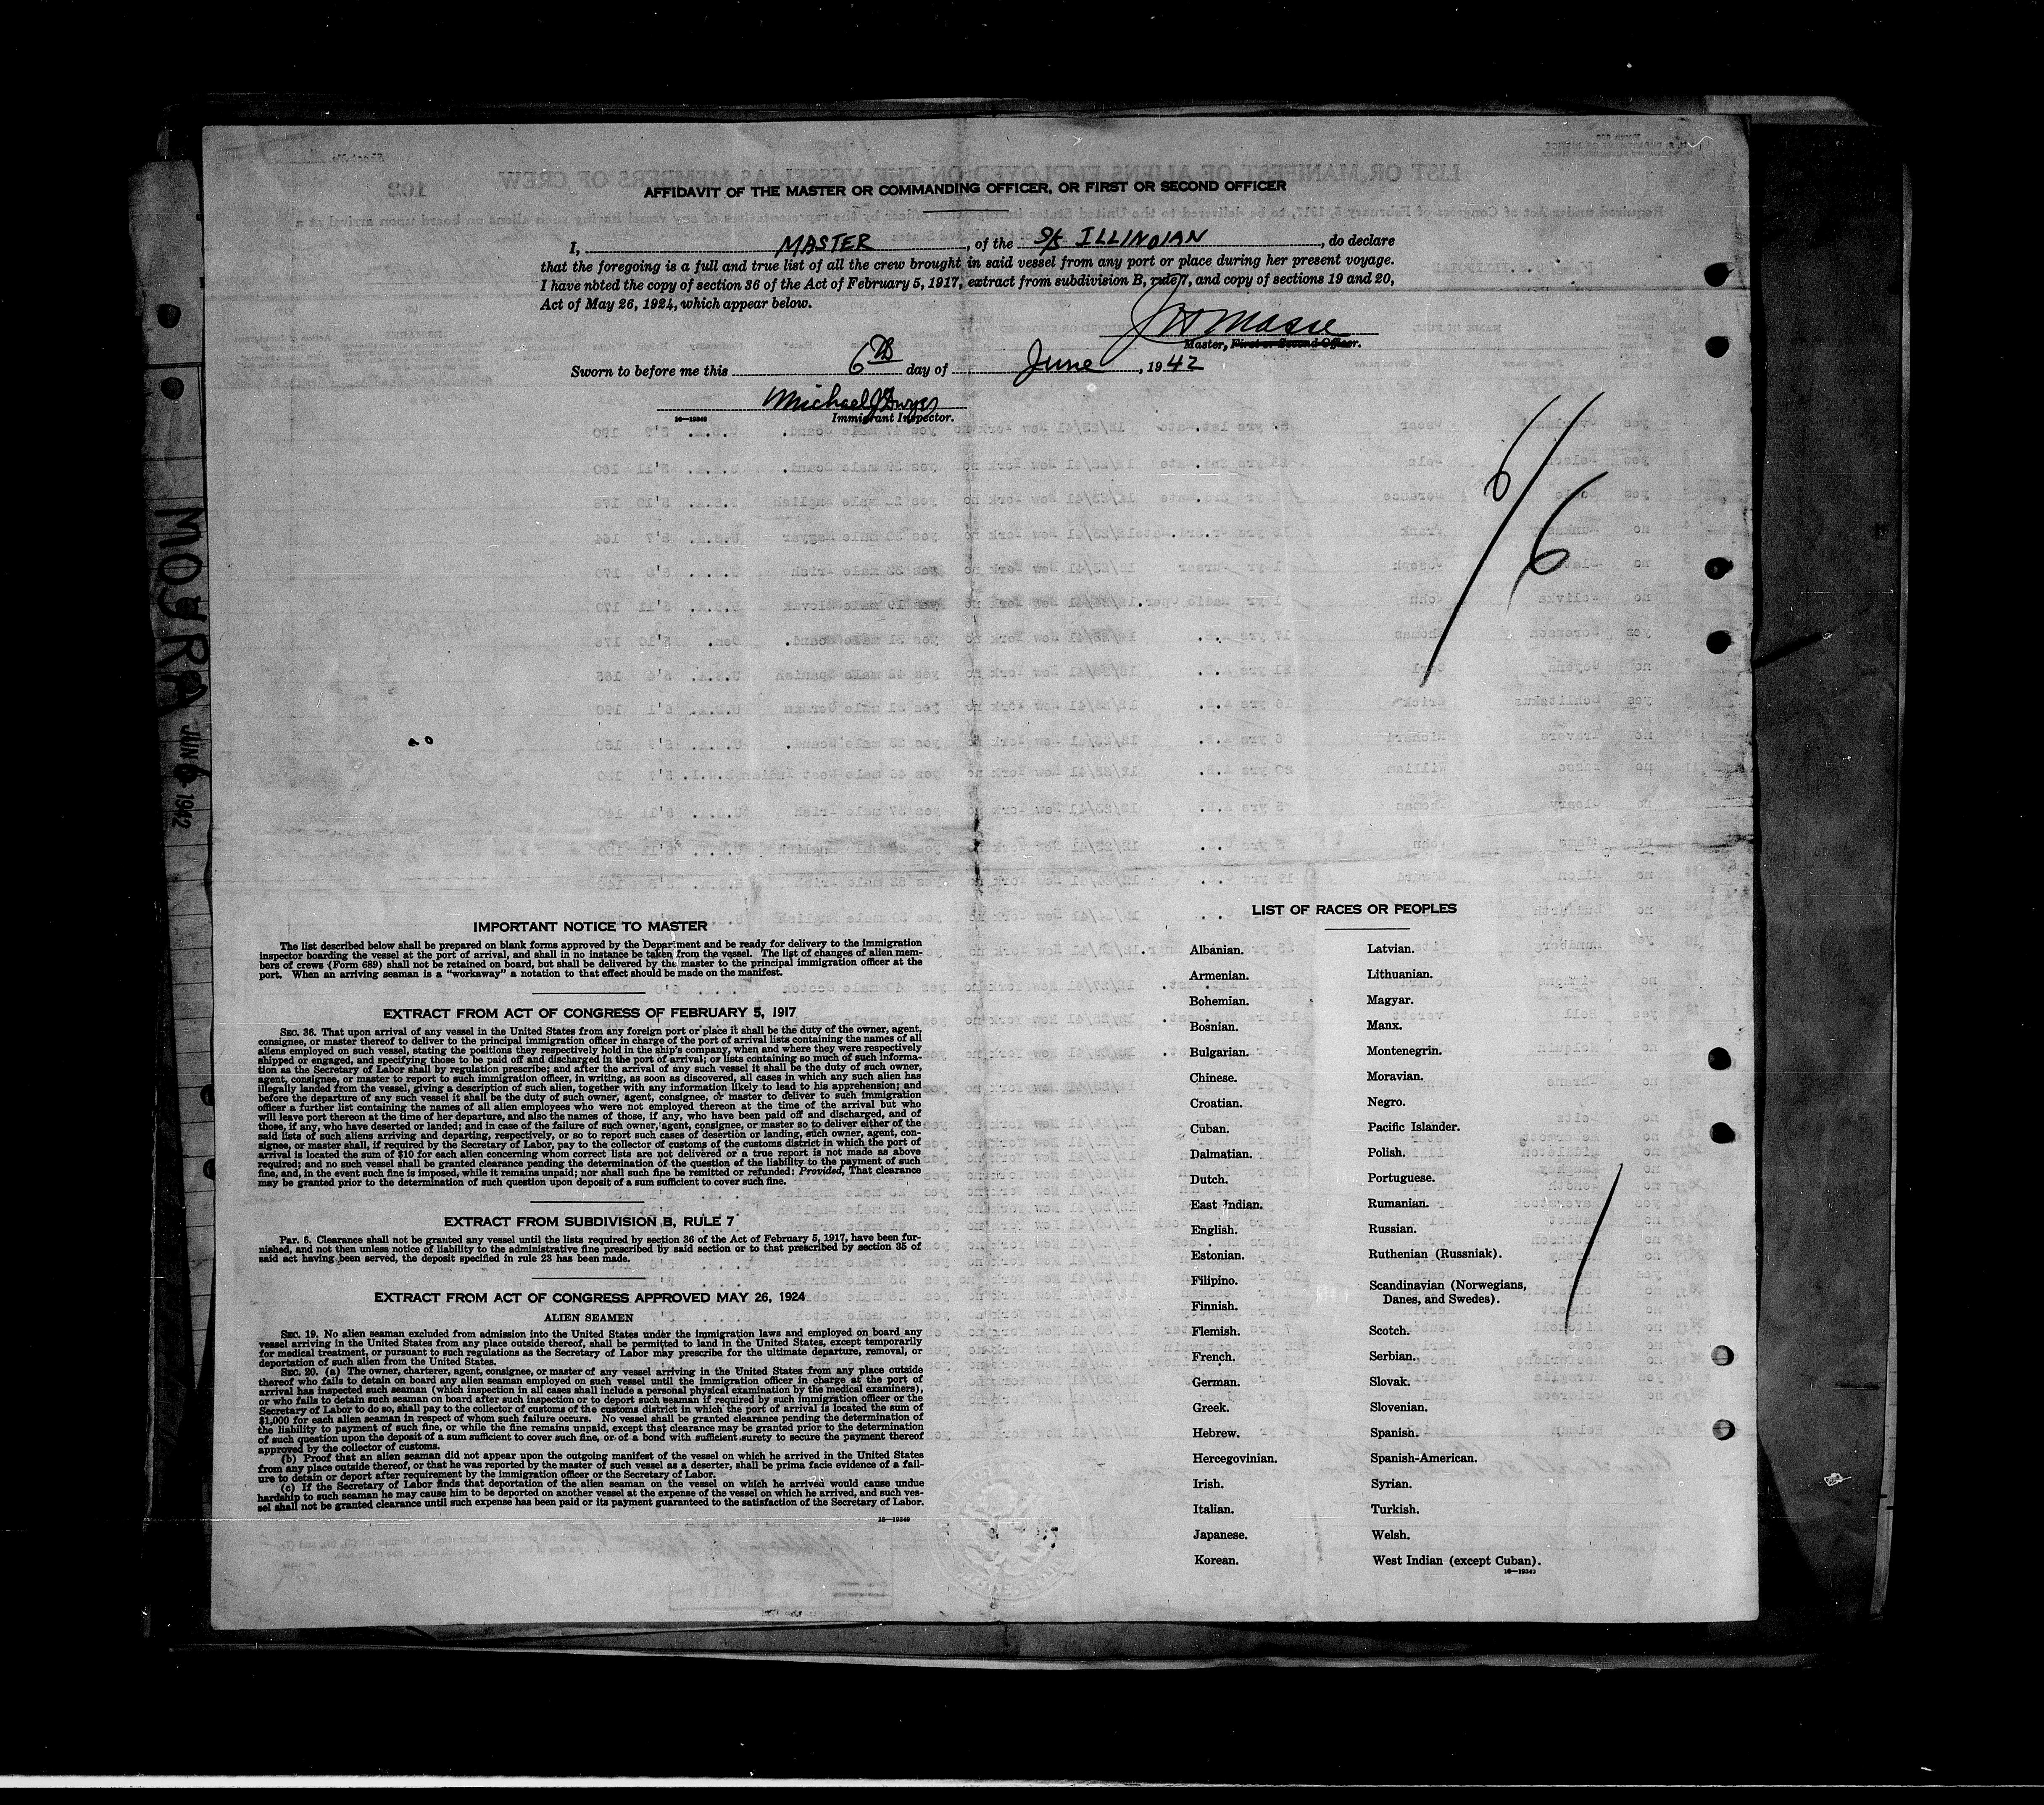 AFFIDAVIT OF THE MASTER OR COMMANDING OFFICER, OR FIRST OR SECOND OFFICER
I, MASTER, of the S/S ILLINOIAN, do declare
that the foregoing is a full and true list of all the crew brought in said vessel from any port or place during her present voyage.
I have noted the copy of section 36 of the Act of February 5, 1917, extract from subdivision B, rule 7, and copy of sections 19 and 20,
Act of May 26, 1924, which appear below.
Master, First or Second Officer.
Sworn to before me this 6th day of June, 1942
Michael J Dwyer
16—19349 Immigrant Inspector.
6/6
MOURA JUN 6 1942
IMPORTANT NOTICE TO MASTER
The list described below shall be prepared on blank forms approved by the Department and be ready for delivery to the immigration
inspector boarding the vessel at the port of arrival, and shall in no instance be taken from the vessel. The list of changes of alien mem-
bers of crews (Form 689) shall not be retained on board, but shall be delivered by the master to the principal immigration officer at the
port. When an arriving seaman is a "workaway" a notation to that effect should be made on the manifest.
EXTRACT FROM ACT OF CONGRESS OF FEBRUARY 5, 1917
SEC. 36. That upon arrival of any vessel in the United States from any foreign port or place it shall be the duty of the owner, agent,
consignee, or master thereof to deliver to the principal immigration officer in charge of the port of arrival lists containing the names of all
aliens employed on such vessel, stating the positions they respectively hold in the ship's company, when and where they were respectively
shipped or engaged, and specifying those to be paid off and discharged in the port of arrival; or lists containing so much of such informa-
tion as the Secretary of Labor shall by regulation prescribe; and after the arrival of any such vessel it shall be the duty of such owner,
agent, consignee, or master to report to such immigration officer, in writing, as soon as discovered, all cases in which any such alien has
illegally landed from the vessel, giving a description of such alien, together with any information likely to lead to his apprehension; and
before the departure of any such vessel it shall be the duty of such owner, agent, consignee, or master to deliver to such immigration
officer a further list containing the names of all alien employees who were not employed thereon at the time of the arrival but who
will leave port thereon at the time of her departure, and also the names of those, if any, who have been paid off and discharged, and of
those, if any, who have deserted or landed; and in case of the failure of such owner, agent, consignee, or master so to deliver either of the
said lists of such aliens arriving and departing, respectively, or so to report such cases of desertion or landing, such owner, agent, con-
signee, or master shall, if required by the Secretary of Labor, pay to the collector of customs of the customs district in which the port of
arrival is located the sum of $10 for each alien concerning whom correct lists are not delivered or a true report is not made as above
required; and no such vessel shall be granted clearance pending the determination of the question of the liability to the payment of such
fine, and, in the event such fine is imposed, while it remains unpaid; nor shall such fine be remitted or refunded: Provided, That clearance
may be granted prior to the determination of such question upon deposit of a sum sufficient to cover such fine.
EXTRACT FROM SUBDIVISION B, RULE 7
Par. 6. Clearance shall not be granted any vessel until the lists required by section 36 of the Act of February 5, 1917, have been fur-
nished, and not then unless notice of liability to the administrative fine prescribed by said section or to that prescribed by section 35 of
said act having been served, the deposit specified in rule 23 has been made.
EXTRACT FROM ACT OF CONGRESS APPROVED MAY 26, 1924
ALIEN SEAMEN
SEC. 19. No alien seaman excluded from admission into the United States under the immigration laws and employed on board any
vessel arriving in the United States from any place outside thereof, shall be permitted to land in the United States, except temporarily
for medical treatment, or pursuant to such regulations as the Secretary of Labor may prescribe for the ultimate departure, removal, or
deportation of such alien from the United States.
SEC. 20. (a) The owner, charterer, agent, consignee, or master of any vessel arriving in the United States from any place outside
thereof who fails to detain on board any alien seaman employed on such vessel until the immigration officer in charge at the port of
arrival has inspected such seaman (which inspection in all cases shall include a personal physical examination by the medical examiners),
or who fails to detain such seaman on board after such inspection or to deport such seaman if required by such immigration officer or the
Secretary of Labor to do so, shall pay to the collector of customs of the customs district in which the port of arrival is located the sum of
$1,000 for each alien seaman in respect of whom such failure occurs. No vessel shall be granted clearance pending the determination of
the liability to payment of such fine, or while the fine remains unpaid, except that clearance may be granted prior to the determination
of such question upon the deposit of a sum sufficient to cover such fine, or of a bond with sufficient surety to secure the payment thereof
approved by the collector of customs.
(b) Proof that an alien seaman did not appear upon the outgoing manifest of the vessel on which he arrived in the United States
from any place outside thereof, or that he was reported by the master of such vessel as a deserter, shall be prima facie evidence of a fail-
ure to detain or deport after requirement by the immigration officer or the Secretary of Labor.
(c) If the Secretary of Labor finds that deportation of the alien seaman on the vessel on which he arrived would cause undue
hardship to such seaman he may cause him to be deported on another vessel at the expense of the vessel on which he arrived, and such ves-
sel shall not be granted clearance until such expense has been paid or its payment guaranteed to the satisfaction of the Secretary of Labor.
16—19349
LIST OF RACES OR PEOPLES
Albanian.
Armenian.
Bohemian.
Bosnian.
Bulgarian.
Chinese.
Croatian.
Cuban.
Dalmatian.
Dutch.
East Indian.
English.
Estonian.
Filipino.
Finnish.
Flemish.
French.
German.
Greek.
Hebrew.
Hercegovinian.
Irish.
Italian.
Japanese.
Korean.
Latvian.
Lithuanian.
Magyar.
Manx.
Montenegrin.
Moravian.
Negro.
Pacific Islander.
Polish.
Portuguese.
Rumanian.
Russian.
Ruthenian (Russniak).
Scandinavian (Norwegians,
Danes, and Swedes).
Scotch.
Serbian.
Slovak.
Slovenian.
Spanish.
Spanish-American.
Syrian.
Turkish.
Welsh.
West Indian (except Cuban).
16—19349